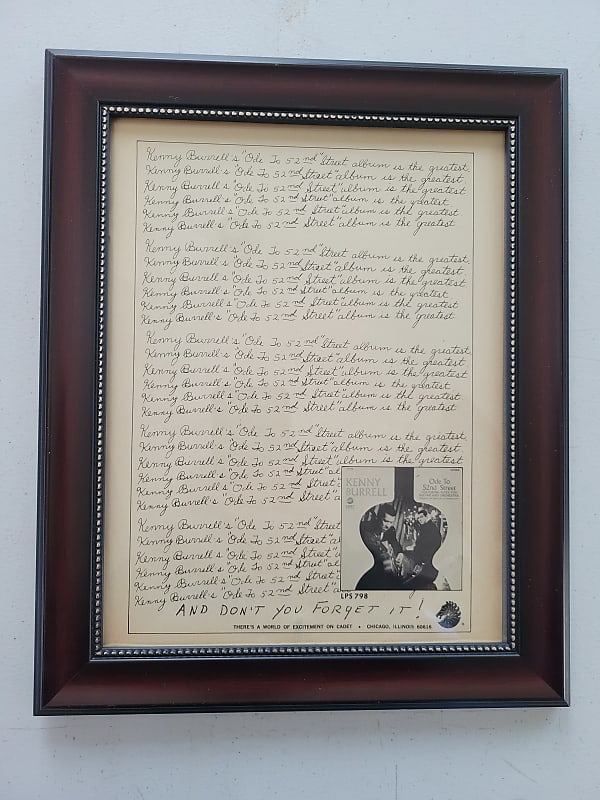 Kenny Burrell's "Ode To 52nd" Street album is the greatest.
Kenny Burrell's "Ode To 52nd Street" album is the greatest.
Kenny Burrell's "Ode To 52nd Street" album is the greatest.
Kenny Burrell's "Ode To 52nd Street" album is the greatest.
Kenny Burrell's "Ode To 52nd Street" album is the greatest
Kenny Burrell's "Ode To 52nd Street" album is the greatest
Kenny Burrell's "Ode To 52nd" Street album is the greatest.
Kenny Burrell's "Ode To 52nd Street" album is the greatest.
Kenny Burrell's "Ode To 52nd Street" album is the greatest.
Kenny Burrell's "Ode To 52nd Street" album is the greatest.
Kenny Burrell's "Ode To 52nd Street" album is the greatest
Kenny Burrell's "Ode To 52nd Street" album is the greatest
Kenny Burrell's "Ode To 52nd" Street album is the greatest.
Kenny Burrell's "Ode To 52nd Street" album is the greatest.
Kenny Burrell's "Ode To 52nd Street" album is the greatest
Kenny Burrell's "Ode To 52nd Street" album is the greatest.
Kenny Burrell's "Ode To 52nd Street" album is the greatest
Kenny Burrell's "Ode To 52nd Street" album is the greatest
Kenny Burrell's "Ode To 52nd" Street album is the greatest.
Kenny Burrell's "Ode To 52nd Street" album is the greatest.
Kenny Burrell's "Ode To 52nd Street" album is the greatest
Kenny Burrell's "Ode To 52nd Street" al
Kenny Burrell's "Ode To 52nd Street"
Kenny Burrell's "Ode To 52nd Street" a
Kenny Burrell's "Ode To 52nd" Street
Kenny Burrell's "Ode To 52nd Street" a
Kenny Burrell's "Ode To 52nd Street"
Kenny Burrell's "Ode To 52nd Street" al
Kenny Burrell's "Ode To 52nd Street"
Kenny Burrell's "Ode To 52nd Street" a
KENNY
BURRELL
Ode To
52nd Street
LPS 798
AND DON'T YOU FORGET IT!
THERE'S A WORLD OF EXCITEMENT ON CADET • CHICAGO, ILLINOIS 60616